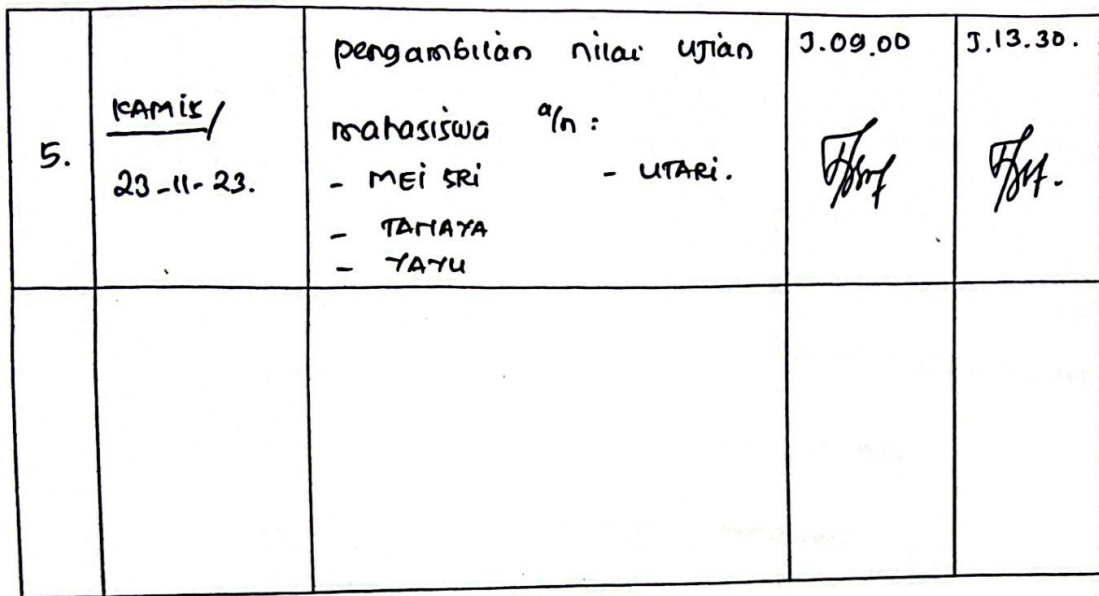 5.
KAMIS/
23-11-23.
pengambilan nilai ujian
mahasiswa a/n :
- MEI SRI - UTARI.
- TAHAYA
- YAYU
J.09.00
J.13.30.